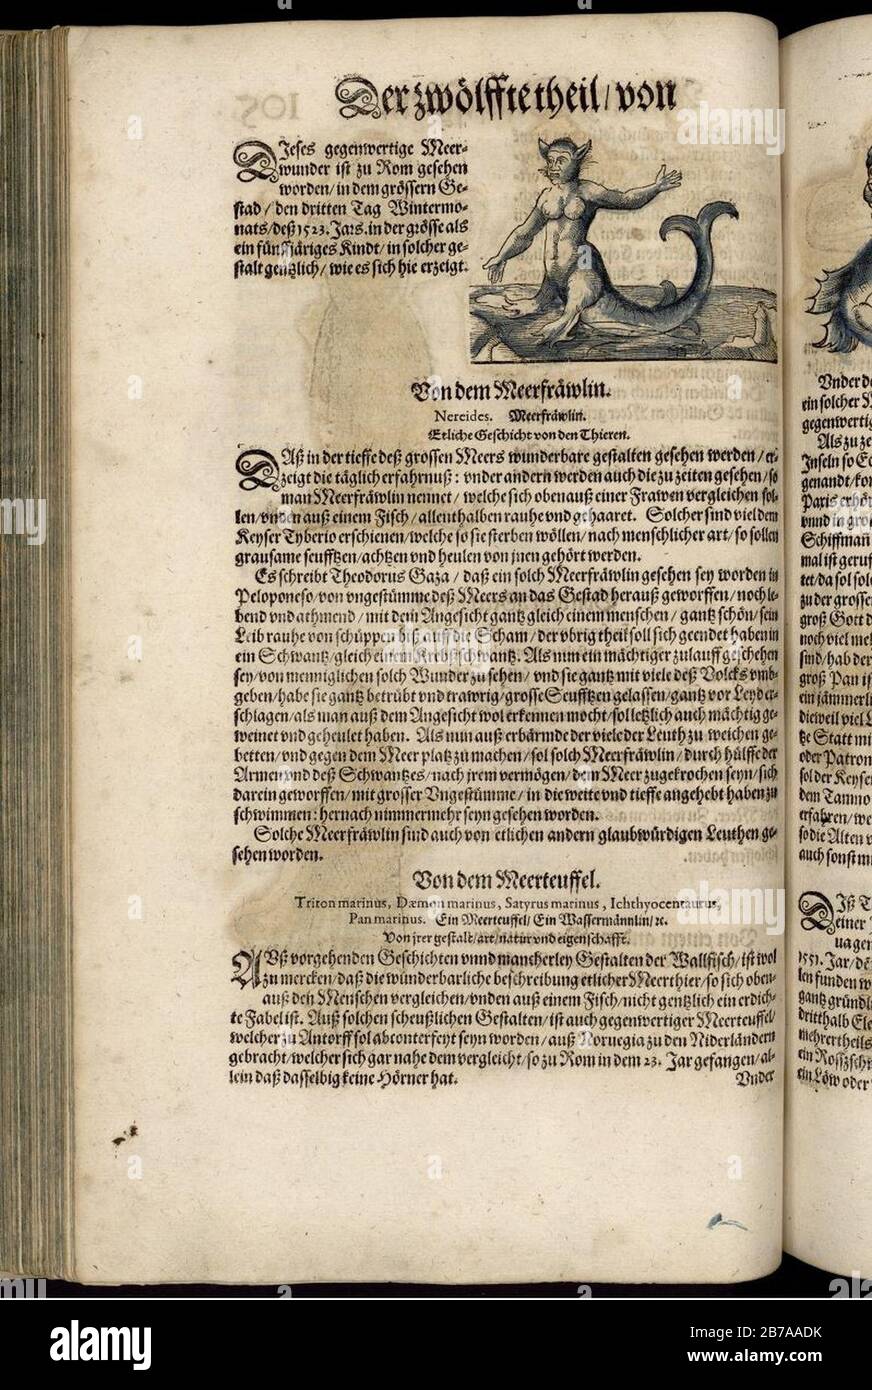 Der zwölffte theil/ von
DIeses gegenwertige Meer-
wunder ist zu Rom gesehen
worden/ in dem grössern Ge-
stad/ den dritten Tag Wintermo-
nats/ deß 1523. Jars. in der grösse als
ein fünffjäriges Kindt/ in solcher ge-
stalt gentzlich/ wie es sich hie erzeigt.
Von dem Meerfräwlin.
Nereides. Meerfräwlin.
Etliche Geschicht von den Thieren.
DAß in der tieffe deß grossen Meers wunderbare gestalten gesehen werden/ er-
zeigt die täglich erfahrnuß: vnder andern werden auch die zu zeiten gesehen/ so
man Meerfräwlin nennet/ welche sich obenauß einer Frawen vergleichen sol-
len/ vnden auß einem Fisch/ allenthalben rauhe vnd gehaaret. Solcher sind viel dem
Keyser Tyberio erschienen/ welche so sie sterben wöllen/ nach menschlicher art/ so sollen
grausame seufftzen/ achtzen vnd heulen von jnen gehört werden.
Es schreibt Theodorus Gaza/ daß ein solch Meerfräwlin gesehen sey worden in
Peloponeso/ von vngestümme deß Meers an das Gestad herauß geworffen/ noch le-
bend vnd athmend/ mit dem Angesicht gantz gleich einem menschen/ gantz schön/ sein
Leib rauhe von schüppen biß auff die Scham/ der vbrig theil soll sich geendet haben in
ein Schwantz/ gleich einem Krebßschwantz. Als nun ein mächtiger zulauff geschehen
sey/ von menniglichen solch Wunder zu sehen/ vnd sie gantz mit viele deß Volcks vmb-
geben/ habe sie gantz betrübt vnd trawrig/ grosse Seufftzen gelassen/ gantz vor Leyd er-
schlagen/ als man auß dem Angesicht wol erkennen mocht/ sol letzlich auch mächtig ge-
weinet vnd geheulet haben. Als nun auß erbärmde der viele der Leuth zu weichen ge-
betten/ vnd gegen dem Meer platz zu machen/ sol solch Meerfräwlin/ durch hülffe der
Armen vnd deß Schwantzes/ nach jrem vermögen/ dem Meer zugekrochen seyn/ sich
darein geworffen/ mit grosser Vngestümme/ in die weite vnd tieffe angehebt haben zu
schwimmen: hernach nimmermehr seyn gesehen worden.
Solche Meerfräwlin sind auch von etlichen andern glaubwürdigen Leuthen ge-
sehen worden.
Von dem Meerteuffel.
Triton marinus, Dæmon marinus, Satyrus marinus, Ichthyocentaurus,
Pan marinus. Ein Meerteuffel/ Ein Wassermännlin/ ꝛc.
Von jrer gestalt/ art/ natur vnd eigenschafft.
AVß vorgehenden Geschichten vnnd mancherley Gestalten der Wallfisch/ ist wol
zu mercken/ daß die wunderbarliche beschreibung etlicher Meerthier/ so sich oben-
auß den Menschen vergleichen/ vnden auß einem Fisch/ nicht gentzlich ein erdich-
te Fabel ist. Auß solchen scheußlichen Gestalten/ ist auch gegenwertiger Meerteuffel/
welcher zu Antorff sol abconterfeyt seyn worden/ auß Noruegia zu den Niderländern
gebracht/ welcher sich gar nahe dem vergleicht/ so zu Rom in dem 23. Jar gefangen/ al-
lein daß dasselbig keine Hörner hat.
Vnder
Vnder
ein solcher
gegenwertig
Als zu ze
Inseln so
genandt/
Paris
vnnd in
Schiffman
mal ist geruf
zu der grosse
groß Gott
noch viel
sind/ hab der
groß Pan
ein jämmerli
dieweil viel
Statt
oder Patron
sol der Keyser
dem
erfahren/
so die Alten
auch sonst
einer
1551. Jar/
funden
gantz
dritthalb
alamy
Image ID: 2B7AADK
www.alamy.com